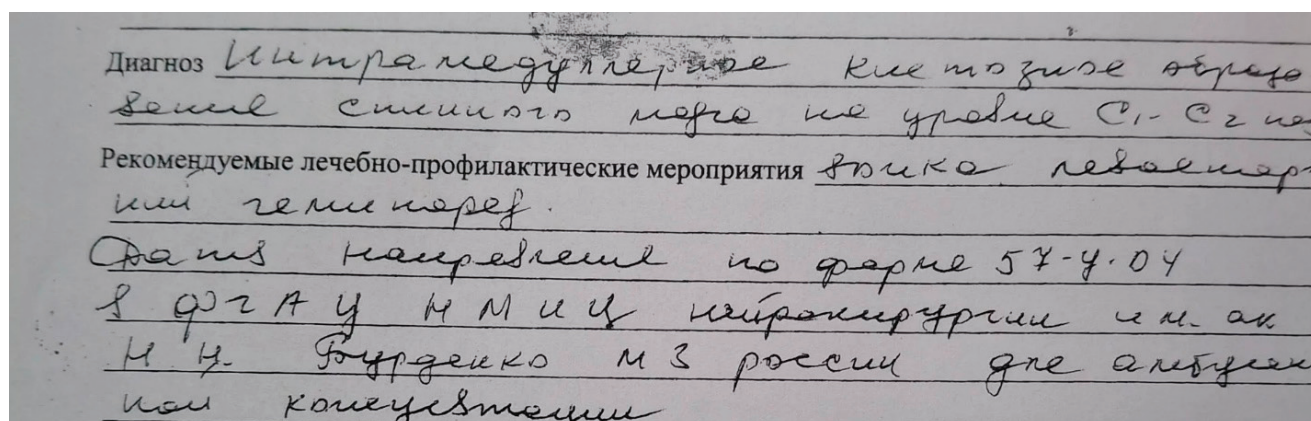 Диагноз Интрамедуллярное кистозное образо
вание спинного мозга на уровне C1-C2 по
Рекомендуемые лечебно-профилактические мероприятия звонка левостор
ний гемипарез.
Дать направление по форме 57-У-04
в ФГАУ НМИЦ нейрохирургии им. ак
Н.Н. Бурденко МЗ россии для амбулат
ной консультации